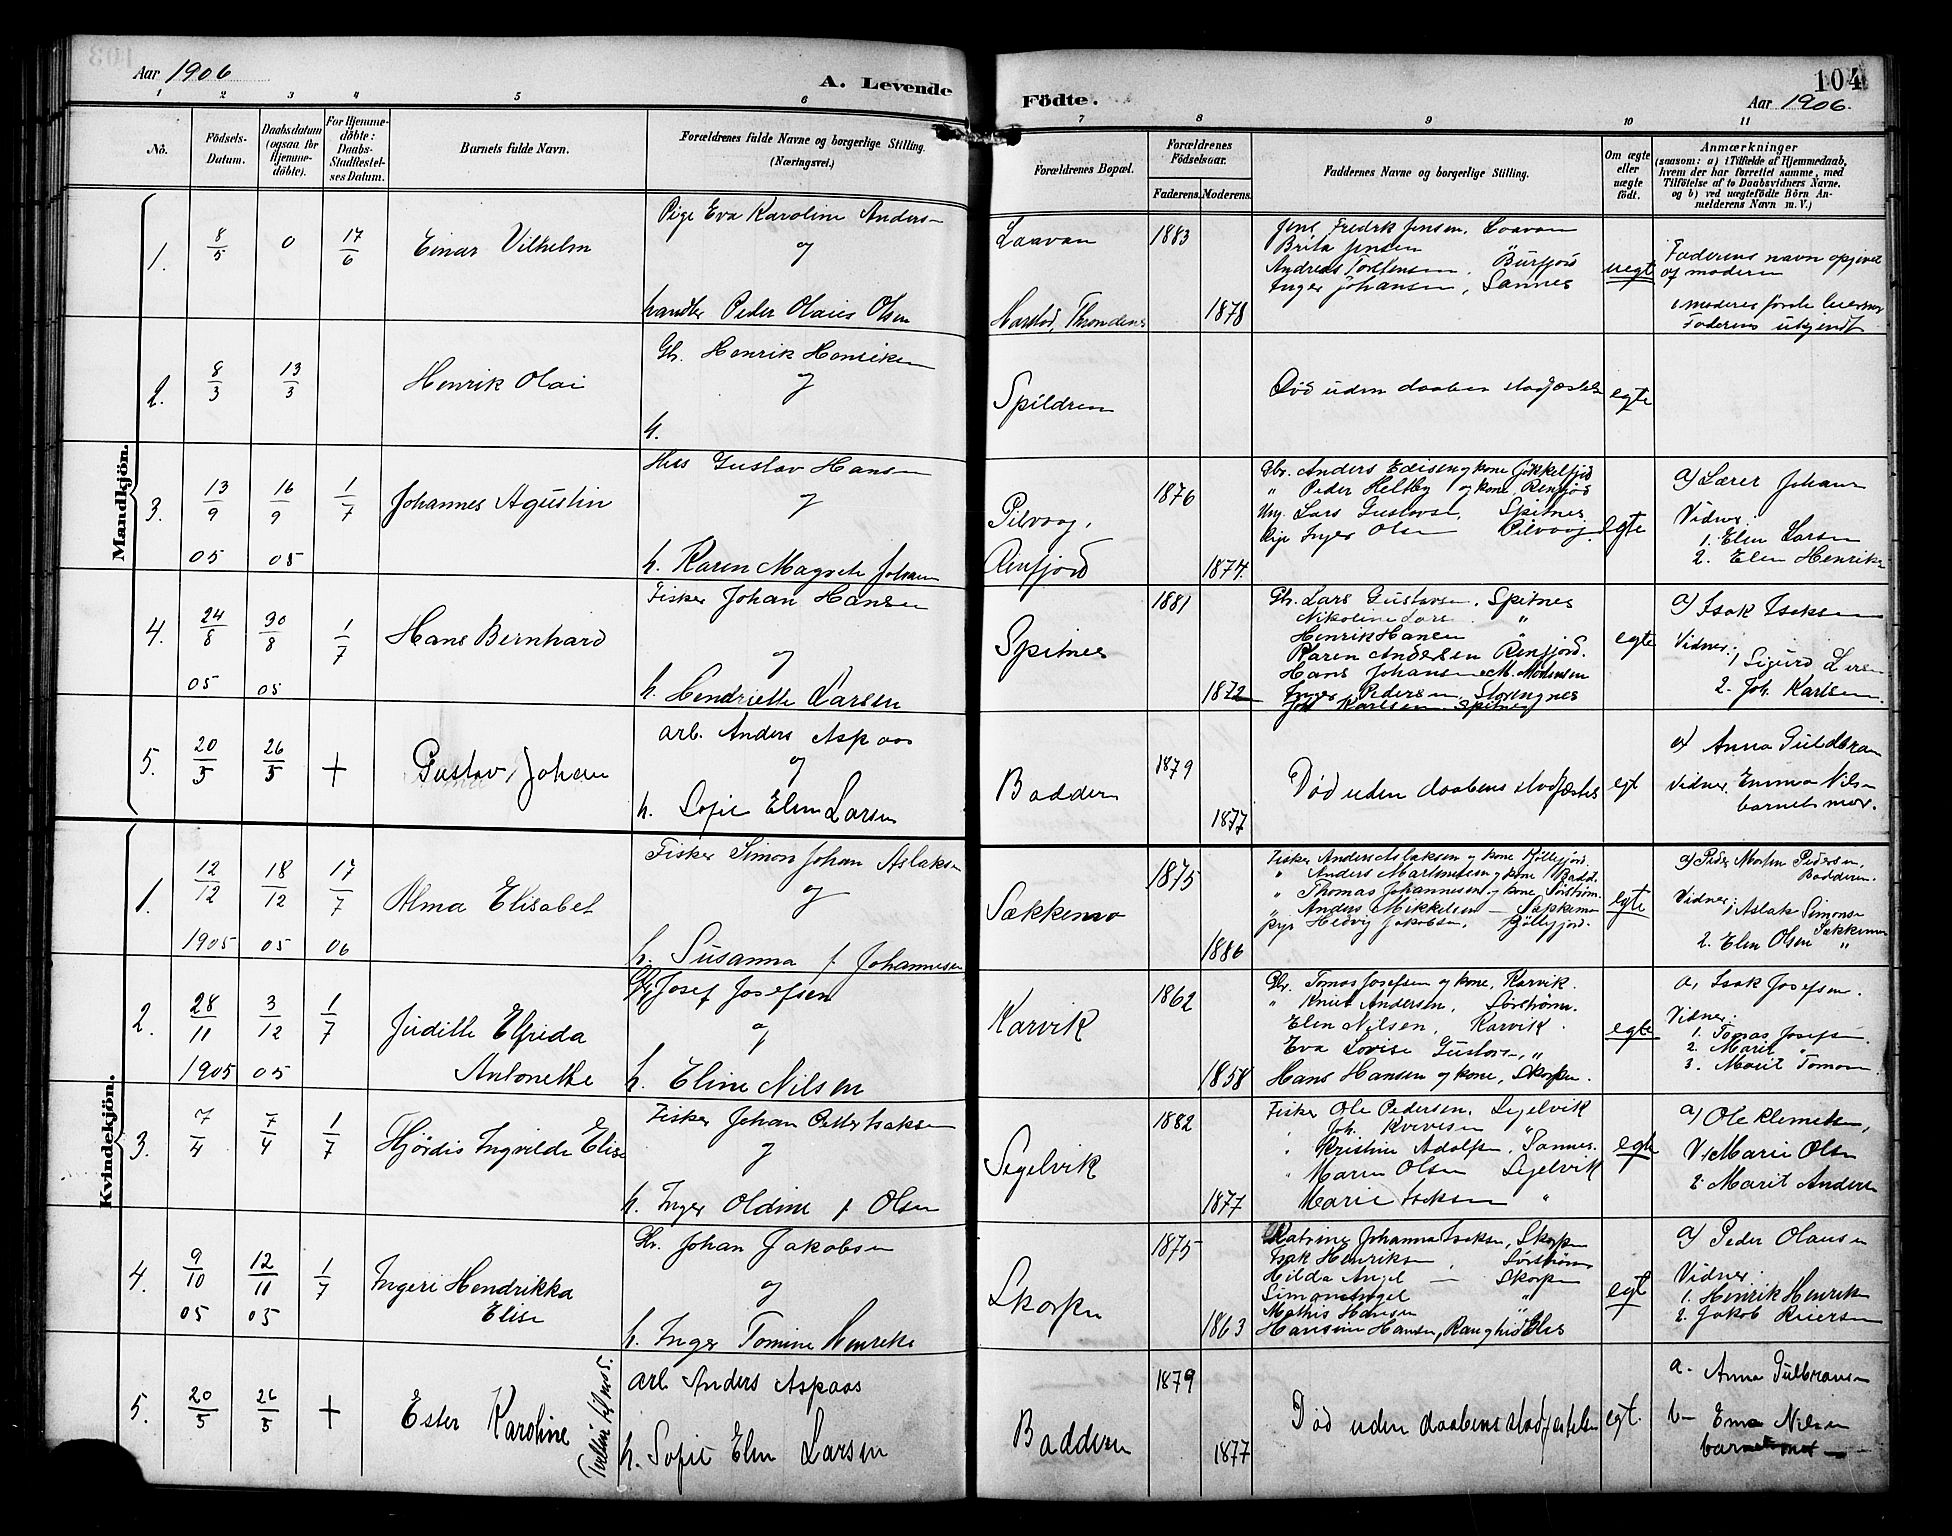 Aar 1906
A. Levende
Födte.
104
Aar 1906.
1 2 3 4 5 6 7 8 9 10 11
No.
Födsels-Datum.
Daabsdatum (ogsaa for Hjemme-döbte).
For Hjemme-döbte: Daabs-Stadfæstel-ses Datum.
Barnets fulde Navn.
Forældrenes fulde Navne og borgerlige Stilling. (Næringsvei.)
Forældrenes Bopæl.
Forældrenes Födselsaar.
Faderens. Moderens.
Faddernes Navne og borgerlige Stilling.
Om ægte eller uægte födt.
Anmærkninger (saasom: a) i Tilfælde af Hjemmedaab, hvem der har forrettet samme, med Tilföielse af to Daabsvidners Navne, og b) ved uægtefödte Börn An-melderens Navn m. V.)
Mandkjön.
1.
8/5
0
17/6
Einar Vilhelm
Pige Eva Karoline Anders-
og
handler Peder Olaus Olsen
Laavan
Harstad, Throndenes
1883
1878
Jens Fredrk Jensen, Laavan
Brita Jensen "
Andreas Torstensen, Burfjord
Inger Johansen, Sannes
uegte
Faderens navn opgivet
af moderen
Faderens ukjendt
2.
8/3
13/3
Henrik Olai
Gb. Henrik Henriksen
og
h.
Spildren
Død uden daabens stadfæstelse
egte
3.
13/9 05
16/9 05
1/7
Johannes Agustin
Hus Gustav Hansen
og
h. Karen Magrete Johansen
Pilvaag,
Reinfjord
1876
1874.
Gbr. Anders Edisen og kone Jøkkelfjord
" Peder Heltby og kone, Renfjord
Ung. Lars Gustavsen, Spitnes
Pige Inger Olsen Pilvaag
egte
a) Lærer Johan
Vidner:
1. Elen Larsen
2. Elen Henriks
4.
24/8 05
30/8 05
1/7
Hans Bernhard
Fisker Johan Hansen
og
h. Hendriette Larsen
Spitnes
1881
1872
Gb. Lars Gustavsen, Spitnes
Nikoline Lars "
Henrik Hansen "
Karen Andersen Renfjord.
Hans Johansen M. Mortensen
Inger Pedersen, Storengnes
Joh Karlsen Spitnes
egte
a) Isak Isaksen
Vidner:
1 Sigurd Lars
2. Joh. Karlsen
5.
20/5
26/5
+
Gustav Johan
arb. Anders Aspaas
og
h. Sofie Elen Larsen
Baddern
1879
1877
Død uden daabens stadfæstels
egt
a) Anna Guldbran
vidner, Emma Nils-
barnets mor.
Kvindekjön.
1.
12/12 1905
18/12 05
17/7 06
Alma Elisabet
Fisker Simon Johan Aslaksen
og
h. Susanna f. Johannesen
Sækkemo
1875
1886
Fisker Anders Aslaksen og kone Kjøllefjord.
" Anders Martinsen og kone Badd.
" Thomas Johannesen og kone Sørstrøm.
" Anders Mikkelsen – Sækkemo
Pige Hedvig Jakobsen, Kjøllefjord.
egte
a) Peder Morten Pedersen,
Badderen.
Vidner:
1, Aslak Simonsen
Sækkemo
2. Elen Olsen "
2.
28/11 1905
3/12 05
1/7
Judithe Elfrida
Antonethe
Gbr. Josef Josefsen
og
h. Eline Nilsen
Karvik
1862
1858
Gbr. Tomas Josefsen og kone, Karvik.
" Knut Andersen, Sørstrøm.
Elen Nilsen, Karvik.
Eva Lovise Gustavs, "
Hans Hansen og kone, Skorpen.
egte
a, Isak Josefsen.
Vidner:
1. Tomas Josefsen
2. Marit "
3. Marit Tomas
3.
7/4
7/4
1/7
Hjørdis Ingvilde Elise
Fisker Johan Petter Isaksen
og
h. Inger Oldine f Olsen
Segelvik
1882
1877
Fisker Ole Pedersen, Segelvik
" Joh. Kvivesen "
" Kristine Adolfsen, Sannes.
" Maren Olsen Segelvik
Marie Isaksen "
egte
a) Ole Klemetsen,
V. 1 Marie Olsen
2. Marit Anders
4.
9/10 05
12/11 05
1/7
Ingeri Hendrikka
Elise
Gbr. Johan Jakobsen
og
h. Inger Tomine Henriks
Skorpen
1875
1863
Katrine Johanna Isaksen, Skorpen
Isak Henriksen, Sørstrøm
Hilda Angel – Skorpen
Simon Angel "
Mathis Hansen "
Hansine Hansen, Ranghild Elis
egt
a) Peder Olausen
Vidner:
1. Henrik Henrik
2. Jakob Reiersen
5.
20/5
26/5
+
Ester Karoline
arb. Anders Aspaas
h. Sofie Elen Larsen
Baddern
1879
1877
Død uden daabens stadfæstelse
egt.
a. Anna Gulbransen
b– Ema Nilsen
barnets mor –